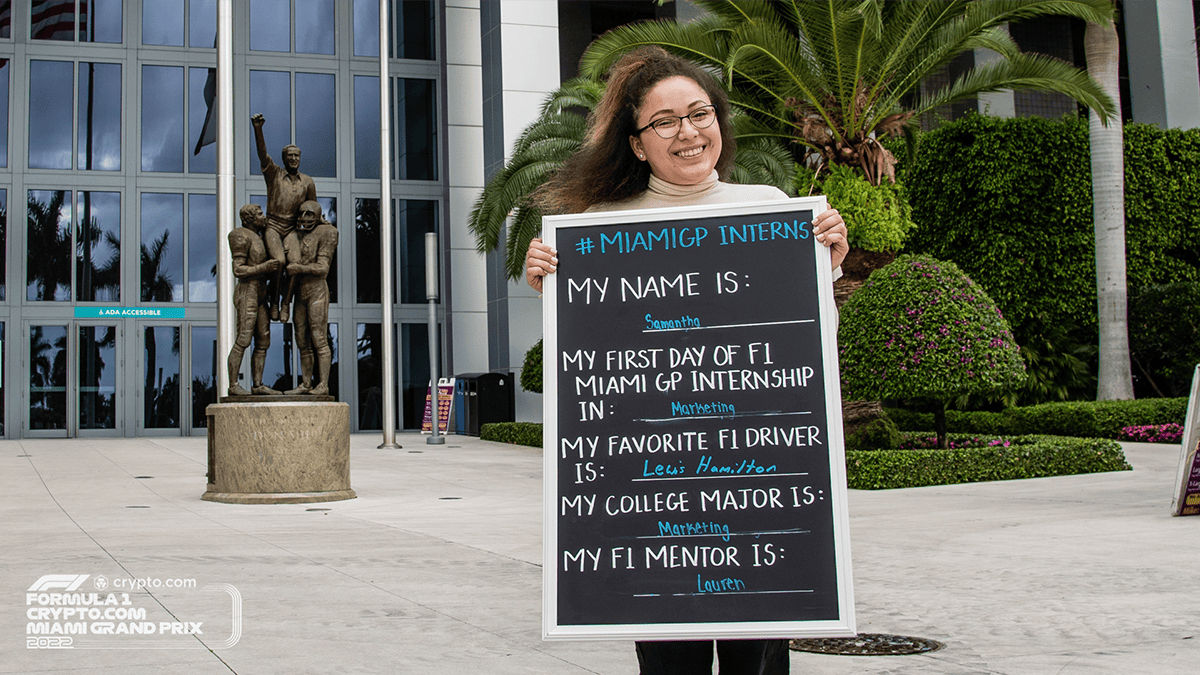 ADA ACCESSIBLE
# MIAMIGP INTERNS
MY NAME IS:
Samantha
MY FIRST DAY OF F1
MIAMI GP INTERNSHIP
IN: Marketing
MY FAVORITE F1 DRIVER
IS: Lewis Hamilton
MY COLLEGE MAJOR IS:
Marketing
MY F1 MENTOR IS:
Lauren
F1 crypto.com
FORMULA 1
CRYPTO.COM
MIAMI GRAND PRIX
2022